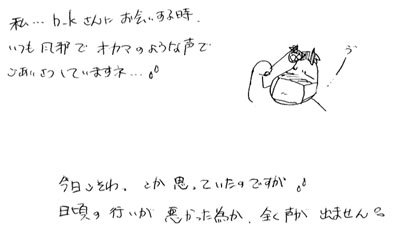 私… h-k さんに お会いする時、
いつも 風邪で オカマのような声で
ごあいさつしていますネ…
う゛
今日こそわ。とか 思っていたのですが
日頃の 行いが 悪かった為か、全く声が 出ません